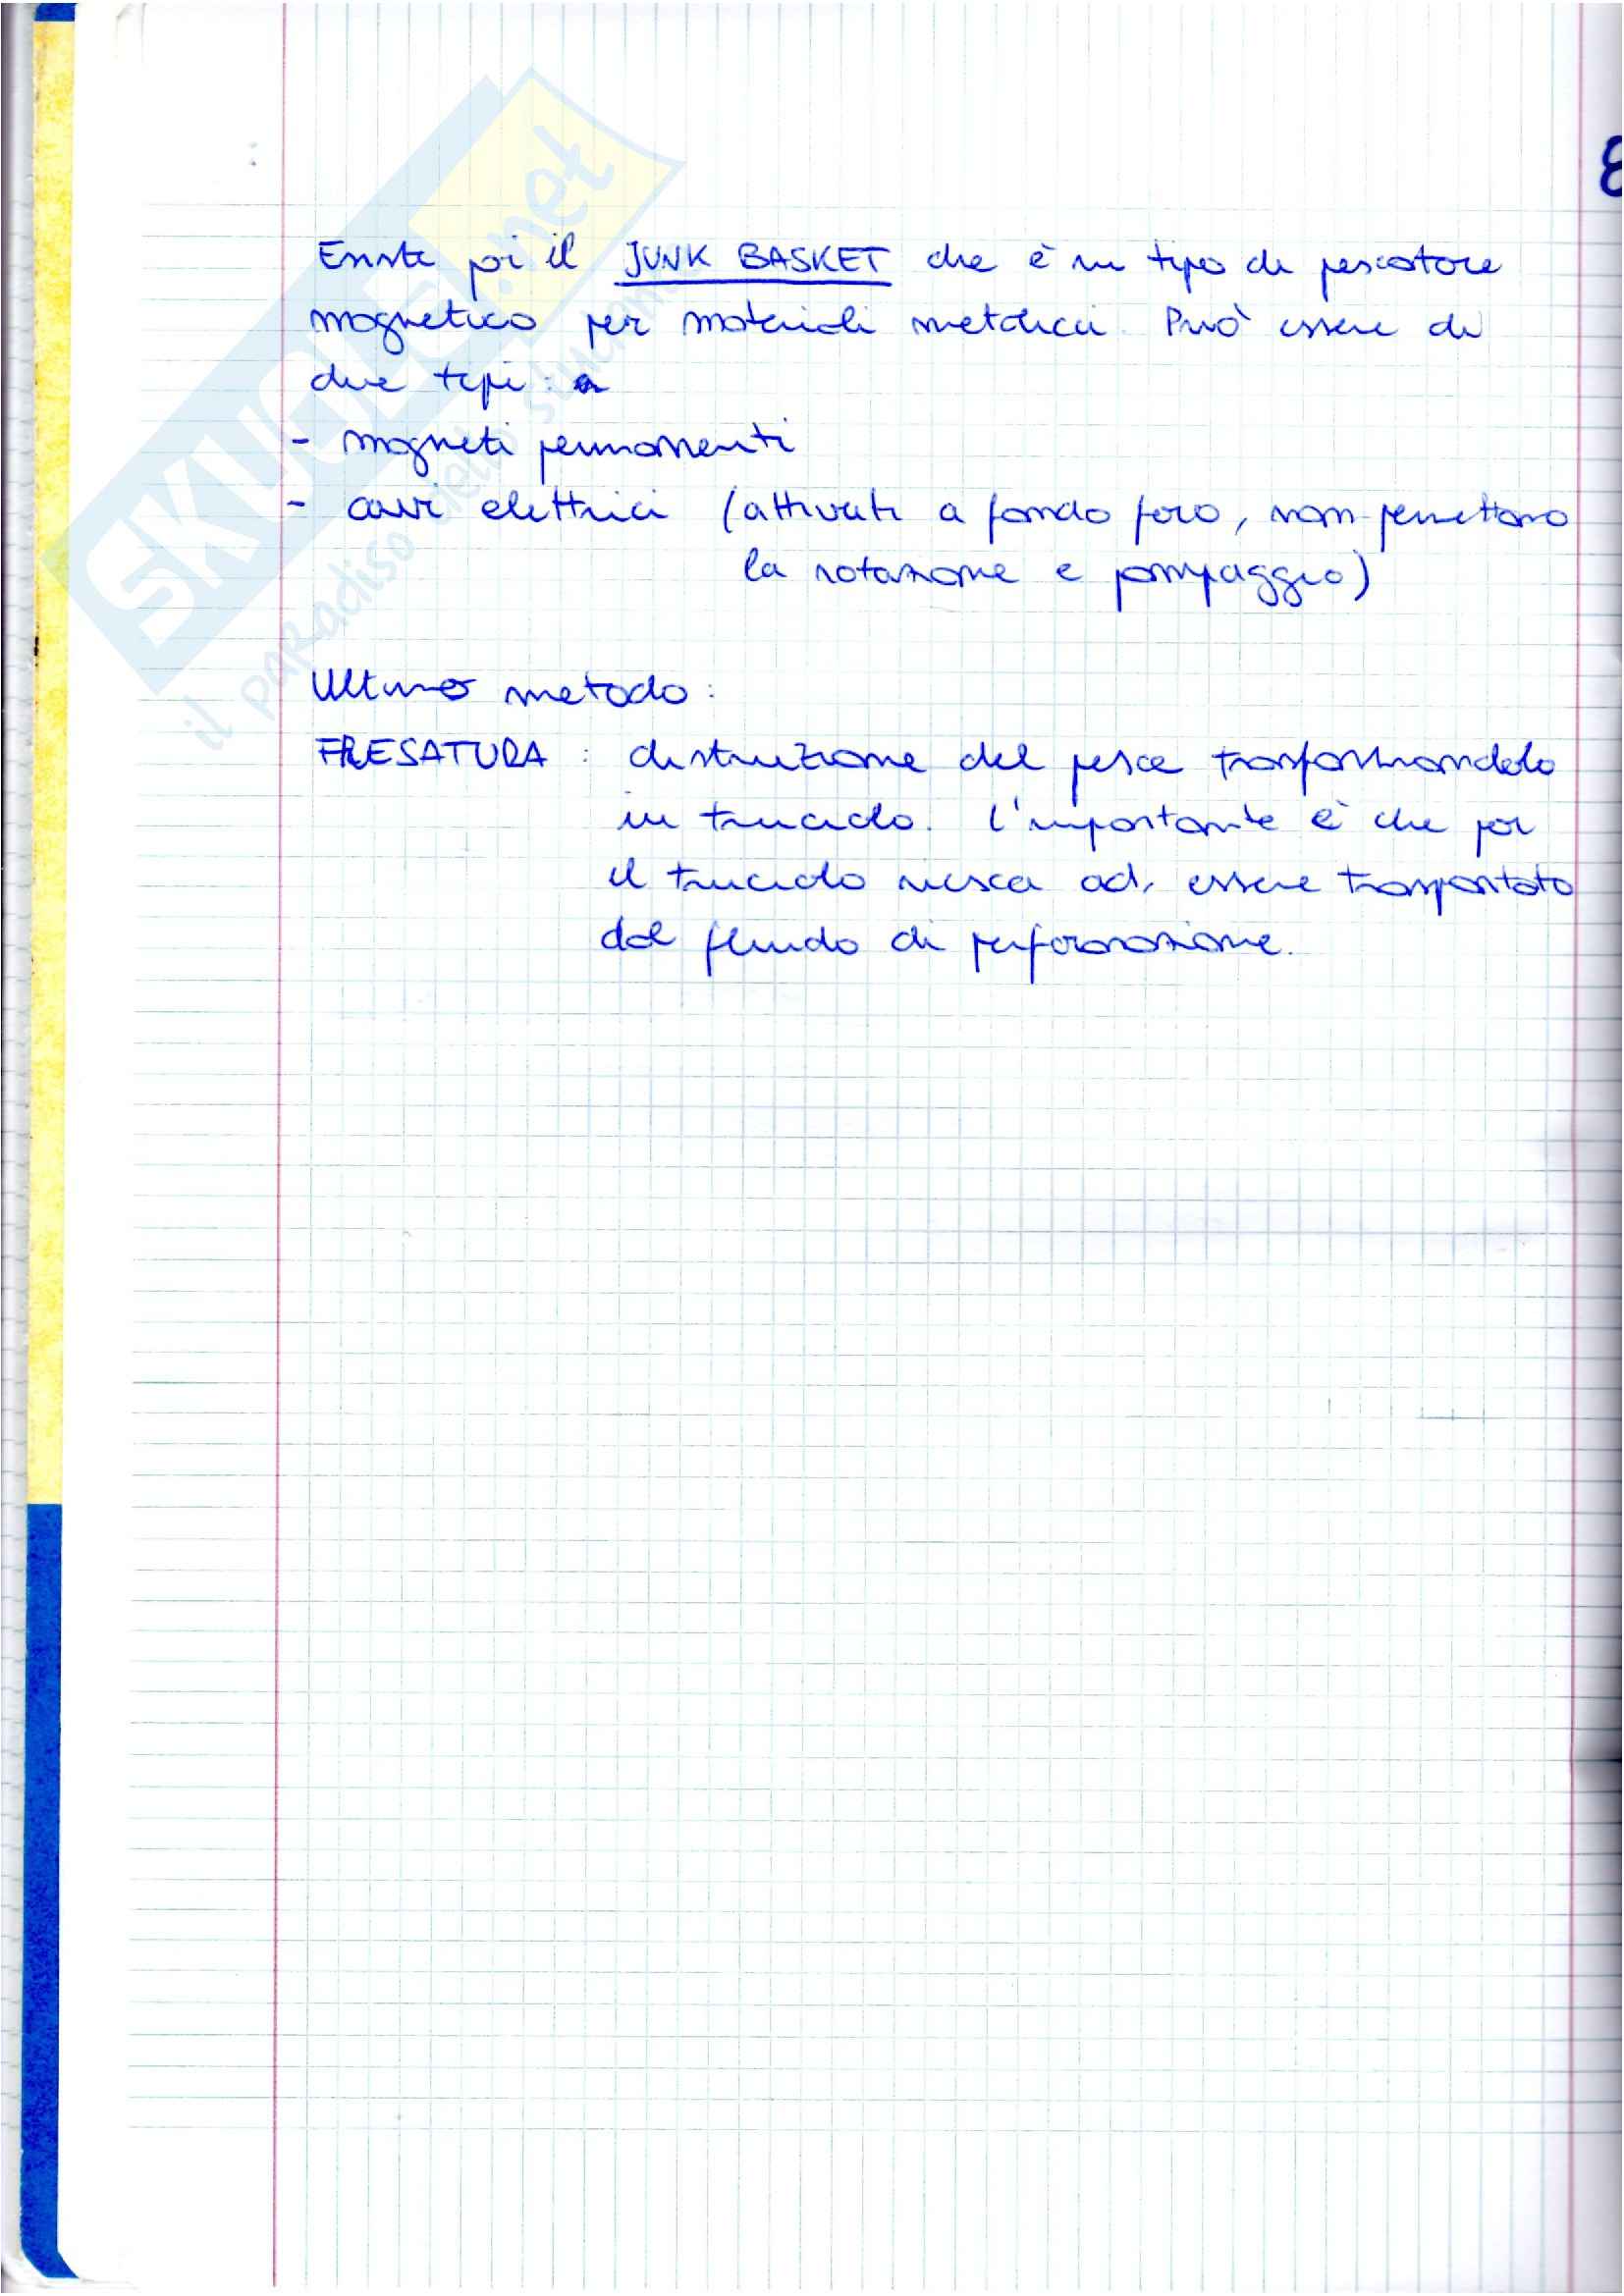 8
Esiste poi il JUNK BASKET che è un tipo di pescatore
magnetico per materiali metallici. Può essere di
due tipi:
- magneti permanenti
- cavi elettrici (attivati a fondo foro, non permettono
la rotazione e pompaggio)
Ultimo metodo:
FRESATURA: distruzione del pesce trasformandolo
in truciolo. L'importante è che poi
il truciolo riesca ad essere trasportato
dal fluido di perforazione.
SKUOLA.net
il paradiso dello studente